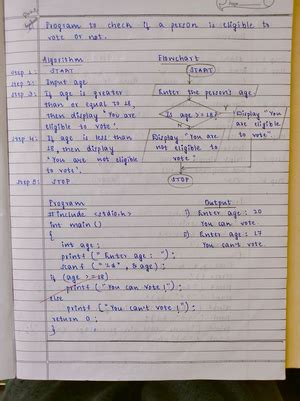 Program to check if a person is eligible to
vote or not.
Algorithm
Flowchart
Step 1: START
START
Step 2: Input age
Step 3: If age is greater
than or equal to 18,
then display "You are
eligible to vote".
Enter the persons age.
Is age >= 18?
Y
Display "You
are eligible
to vote".
Step 4: If age is less than
18, then display
"You are not eligible
to vote".
Display "You are
not eligible to
vote"
Step 5: STOP
STOP
Program
#include <stdio.h>
int main ()
{
int age;
printf ("Enter age : ");
scanf ("%d", &age);
if (age >=18)
printf ("You can vote!");
else
printf ("You can't vote!");
return 0;
}
Output
1) Enter age : 20
You can vote.
2) Enter age : 17
You can't vote.